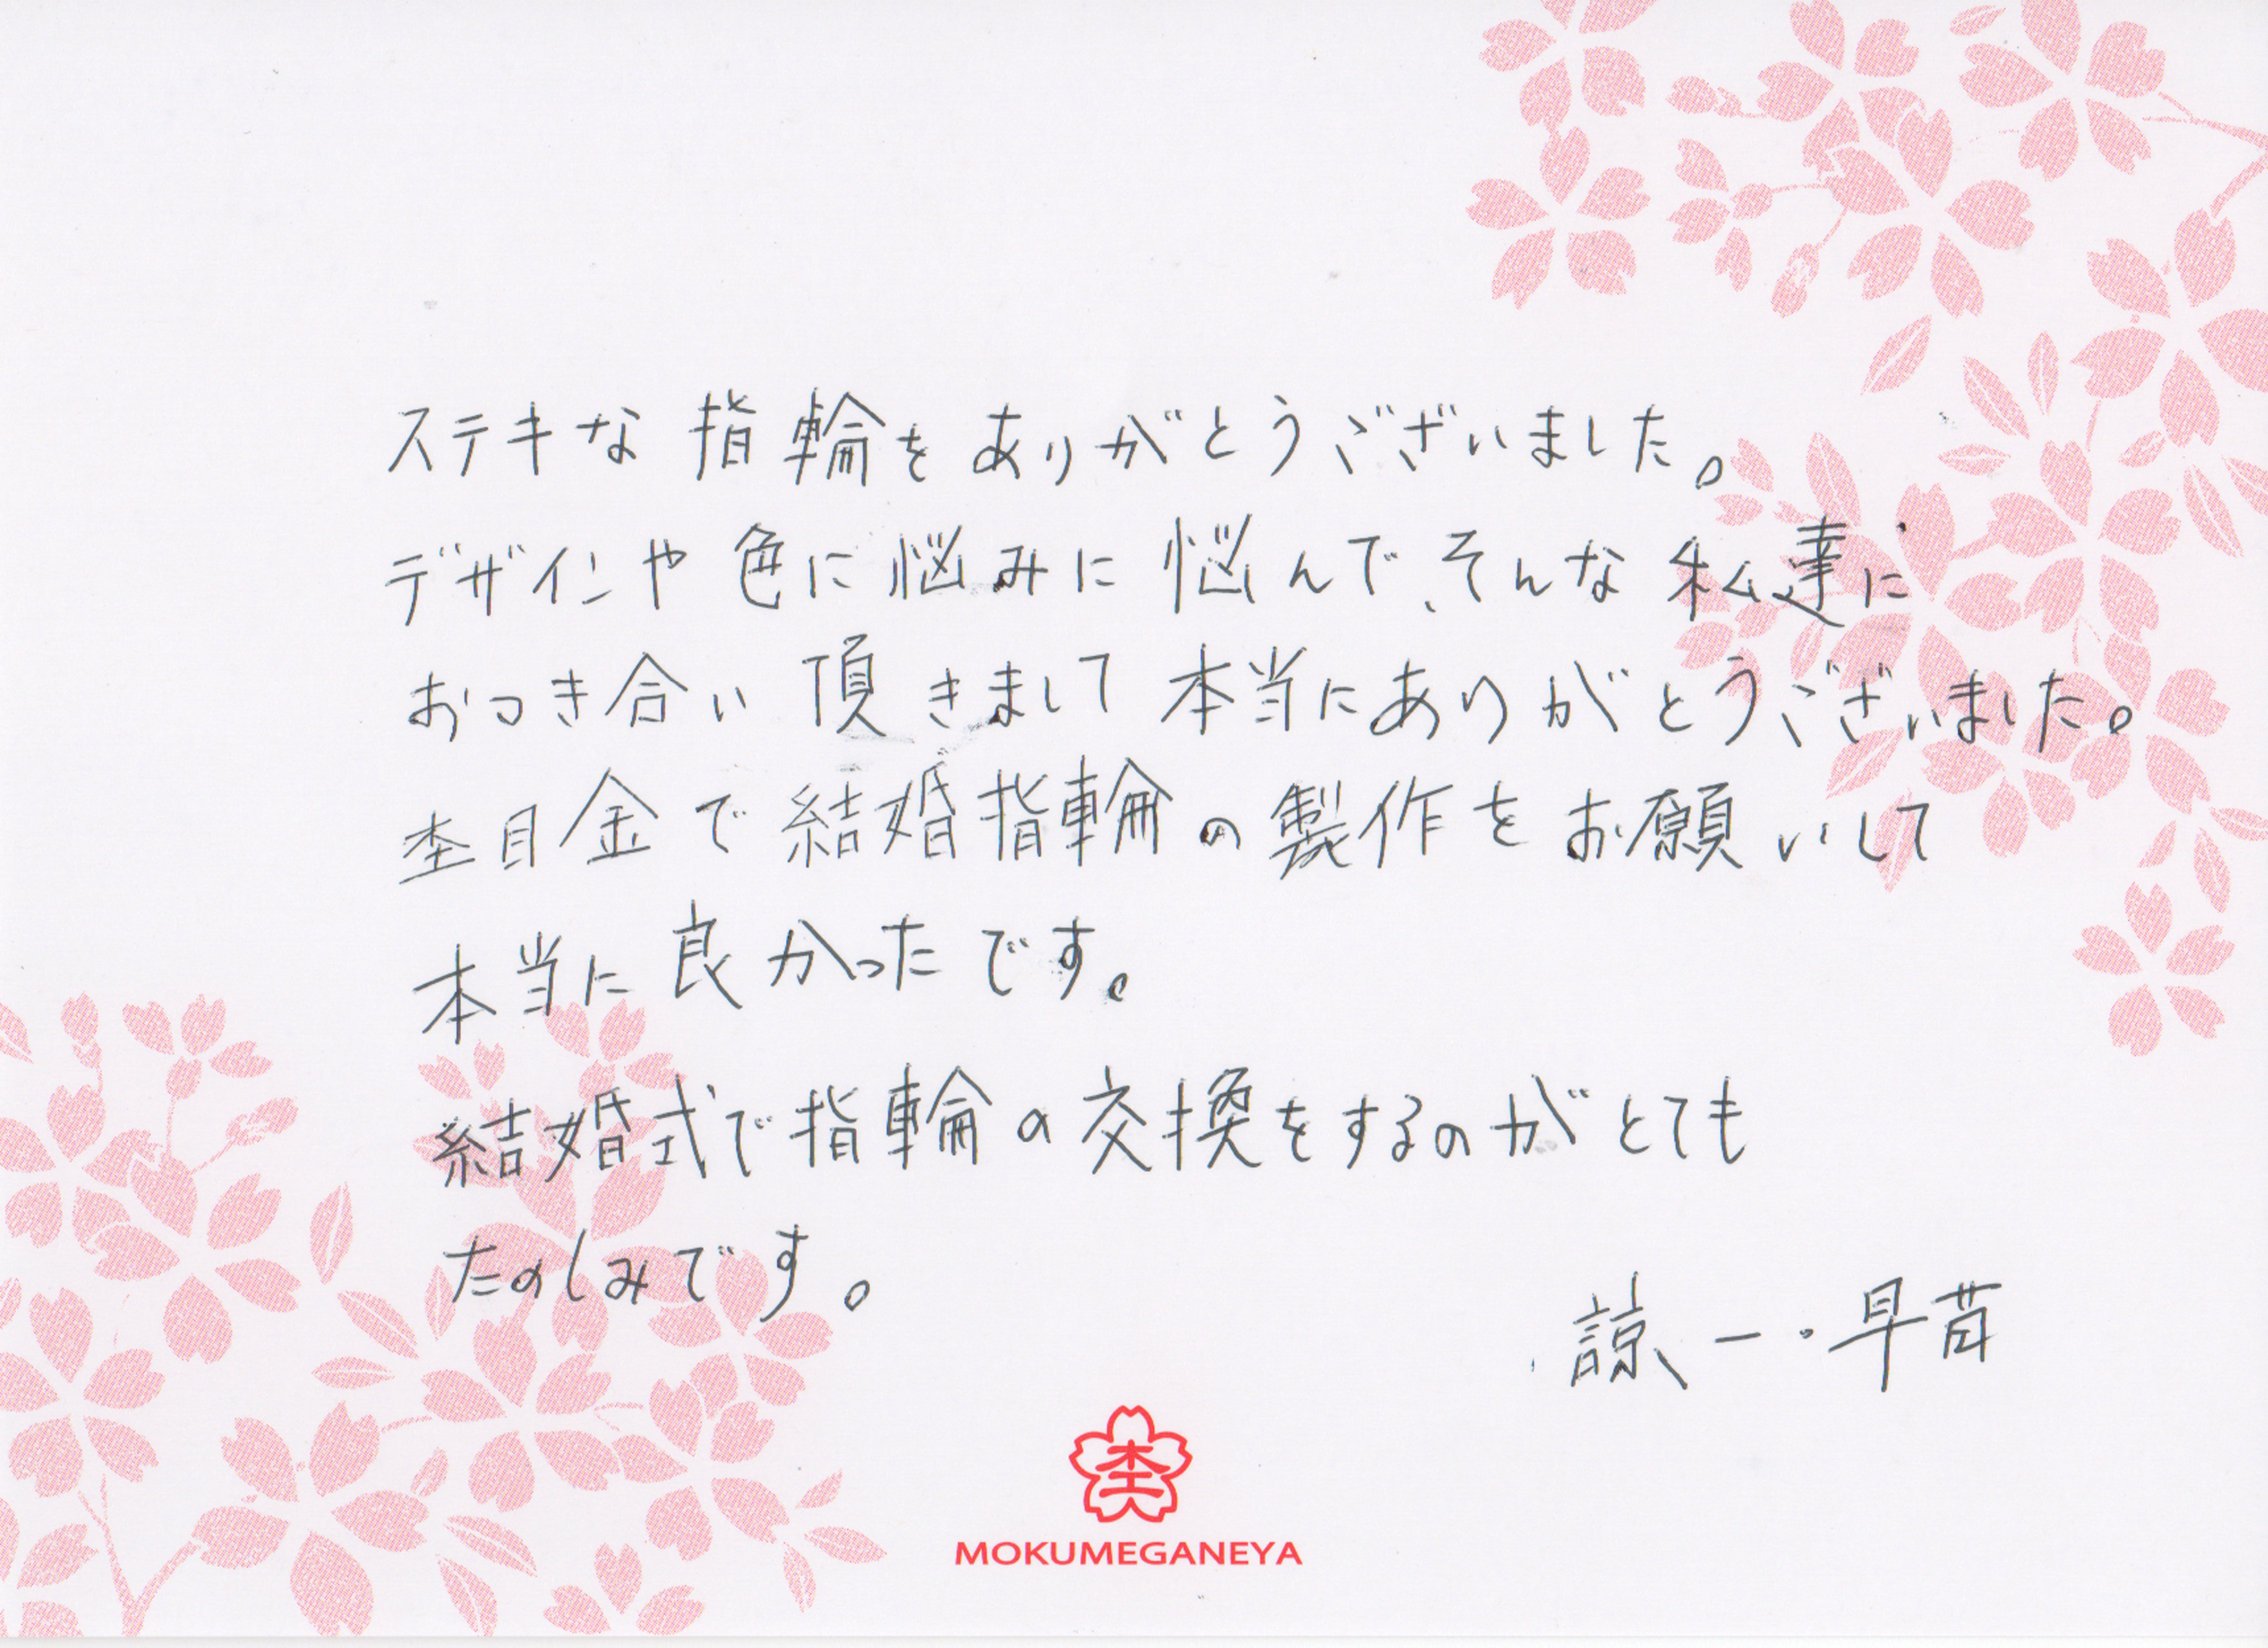 ステキな指輪をありがとうございました。
デザインや色に悩みに悩んで、そんな私達に
おつき合い頂きまして本当にありがとうございました。
杢目金で結婚指輪の製作をお願いして
本当に良かったです。
結婚式で指輪の交換をするのがとても
たのしみです。
諒一・早苗
杢
MOKUMEGANEYA